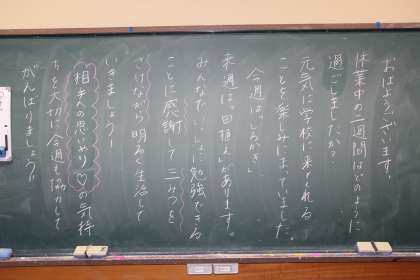 おはようございます。
休業中の二週間はどのように
過ごしましたか？
元気に学校に来てくれる
ことを楽しみにまっていました。
今週は、いろかぎ、
来週は、田植えがあります。
みんなでいっしょに勉強できる
ことに感謝して三みつを
さけながら明るく生活して
いきましょう！
相手への思いやり♡の気持
ちを大切に今週も協力して
がんばりましょう！